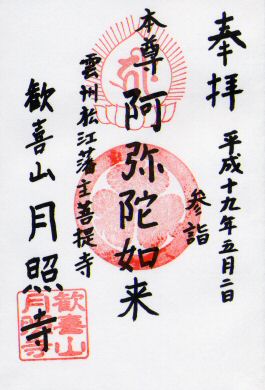 奉拝
平成十九年五月二日
参詣
本尊
阿弥陀如来
雲州松江藩主菩提寺
歓喜山
月照寺
歓喜山
月照寺